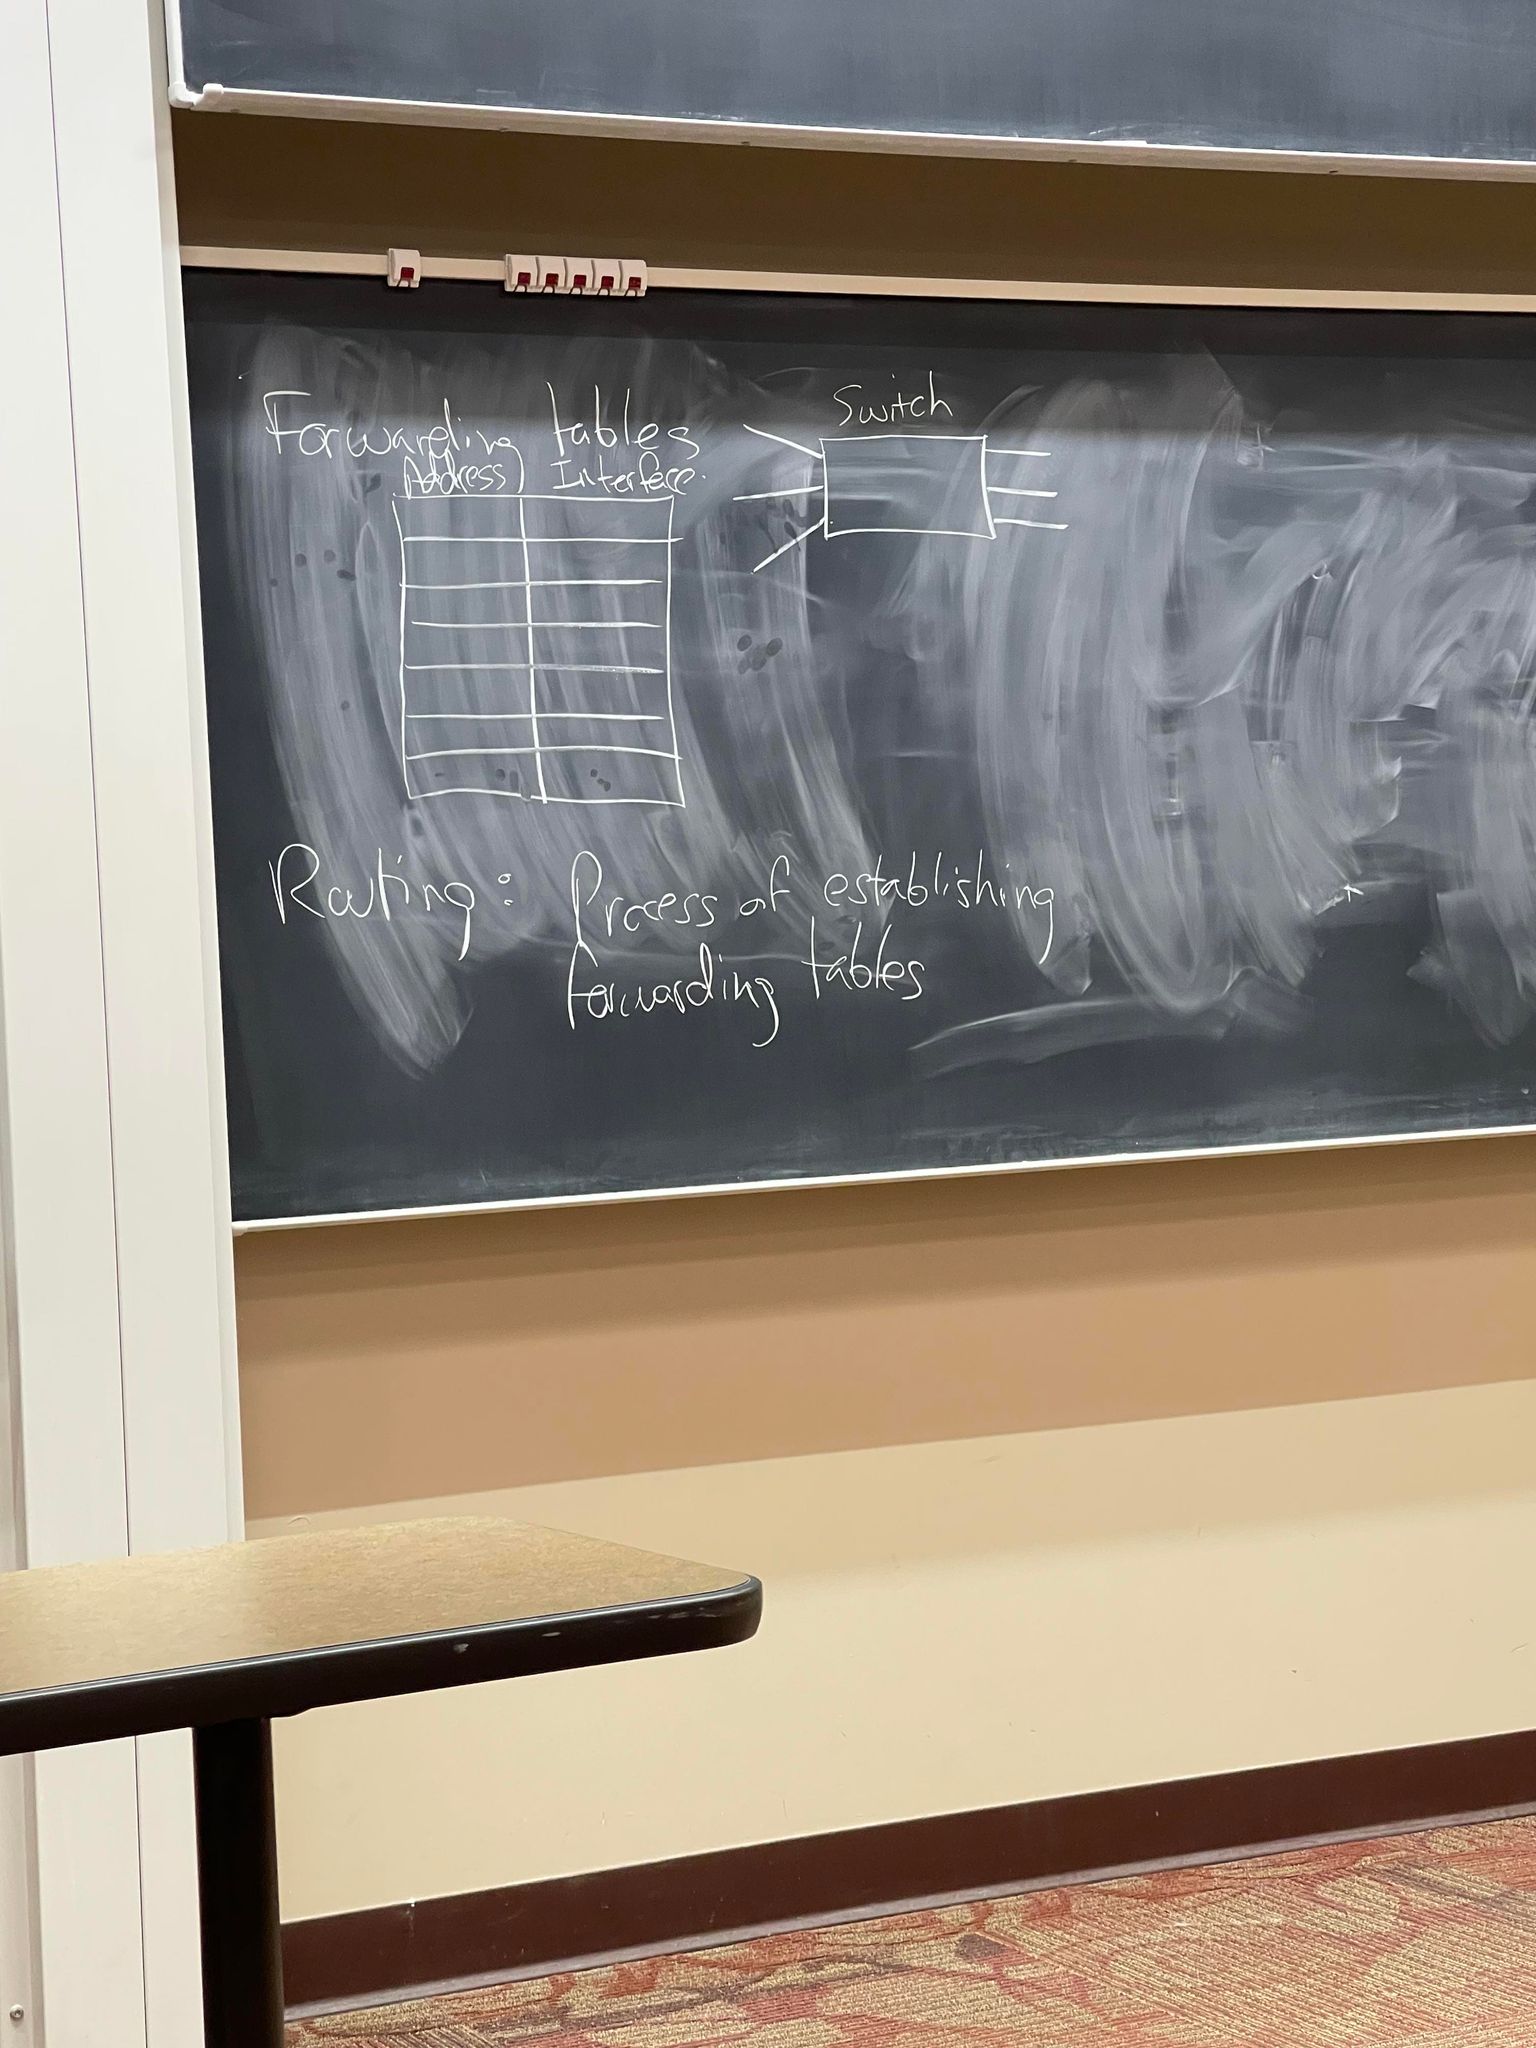 Forwarding tables
Address Interface.
Switch
Routing: Process of establishing
forwarding tables